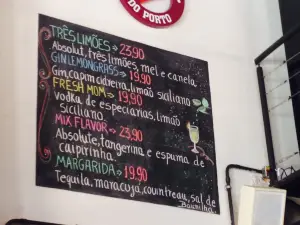 DO PORTO
TRÊS LIMÕES⇒23,90
Absolut, três limões, mel e canela
GIN LEMONGRASS⇒19,90
Gin, capim cidreira, limão siciliano
FRESH MOM⇒19,90
vodka de especiarias, limão
siciliano
MIX FLAVOR⇒23,90
Absolute, tangerina e espuma de
caipirinha
MARGARIDA⇒19,90
Tequila, maracujá, countreau, sal de
Baunilha